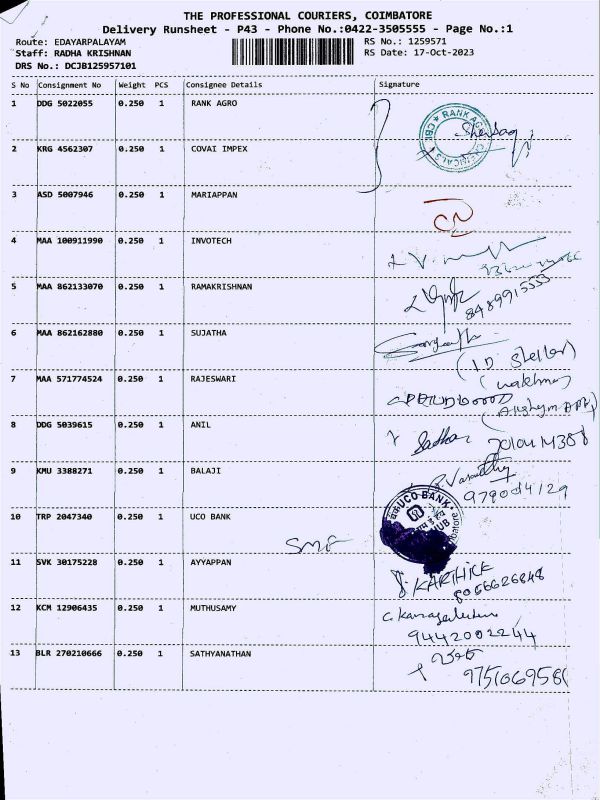 THE PROFESSIONAL COURIERS, COIMBATORE
Delivery Runsheet - P43 - Phone No.:0422-3505555 - Page No.:1
Route: EDAYARPALAYAM RS No.: 1259571
Staff: RADHA KRISHNAN RS Date: 17-Oct-2023
DRS No.: DCJB125957101
S No Consignment No Weight PCS Consignee Details Signature
1 DDG 5022055 0.250 1 RANK AGRO
RANK AG CHEMICALS CBE
2 KRG 4562307 0.250 1 COVAI IMPEX
3 ASD 5007946 0.250 1 MARIAPPAN
4 MAA 100911990 0.250 1 INVOTECH
5 MAA 862133070 0.250 1 RAMAKRISHNAN
8489915555
6 MAA 862162880 0.250 1 SUJATHA
7 MAA 571774524 0.250 1 RAJESWARI
8 DDG 5039615 0.250 1 ANIL
9 KMU 3388271 0.250 1 BALAJI
979004129
10 TRP 2047340 0.250 1 UCO BANK
UCO BANK
HUB
11 SVK 30175228 0.250 1 AYYAPPAN
KARTHICK
8056626848
12 KCM 12906435 0.250 1 MUTHUSAMY
9442002244
13 BLR 270210666 0.250 1 SATHYANATHAN